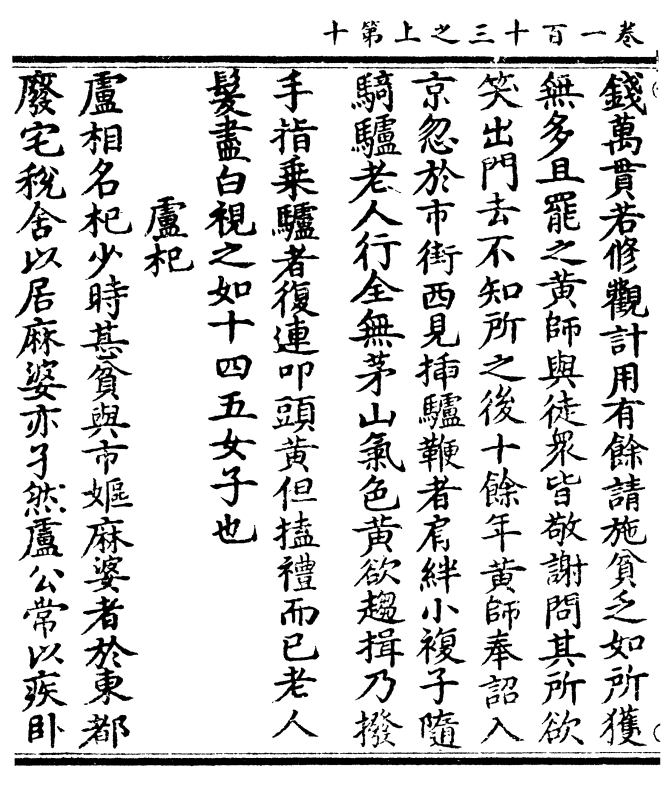 卷一百十三之上第十
錢萬貫若修觀計用有餘請施貧乏如所獲
無多且罷之黃師與徒眾皆敬謝問其所欲
笑出門去不知所之後十餘年黃師奉詔入
京忽於市街西見揷驢鞭者肩絆小複子隨
騎驢老人行全無茅山氣色黃欲趨揖乃撥
手指乗驢者復連叩頭黃但搕禮而已老人
髮盡白視之如十四五女子也
盧杞
盧相名杞少時甚貧與市嫗麻婆者於東都
廢宅稅舍以居麻婆亦孑然盧公常以疾卧